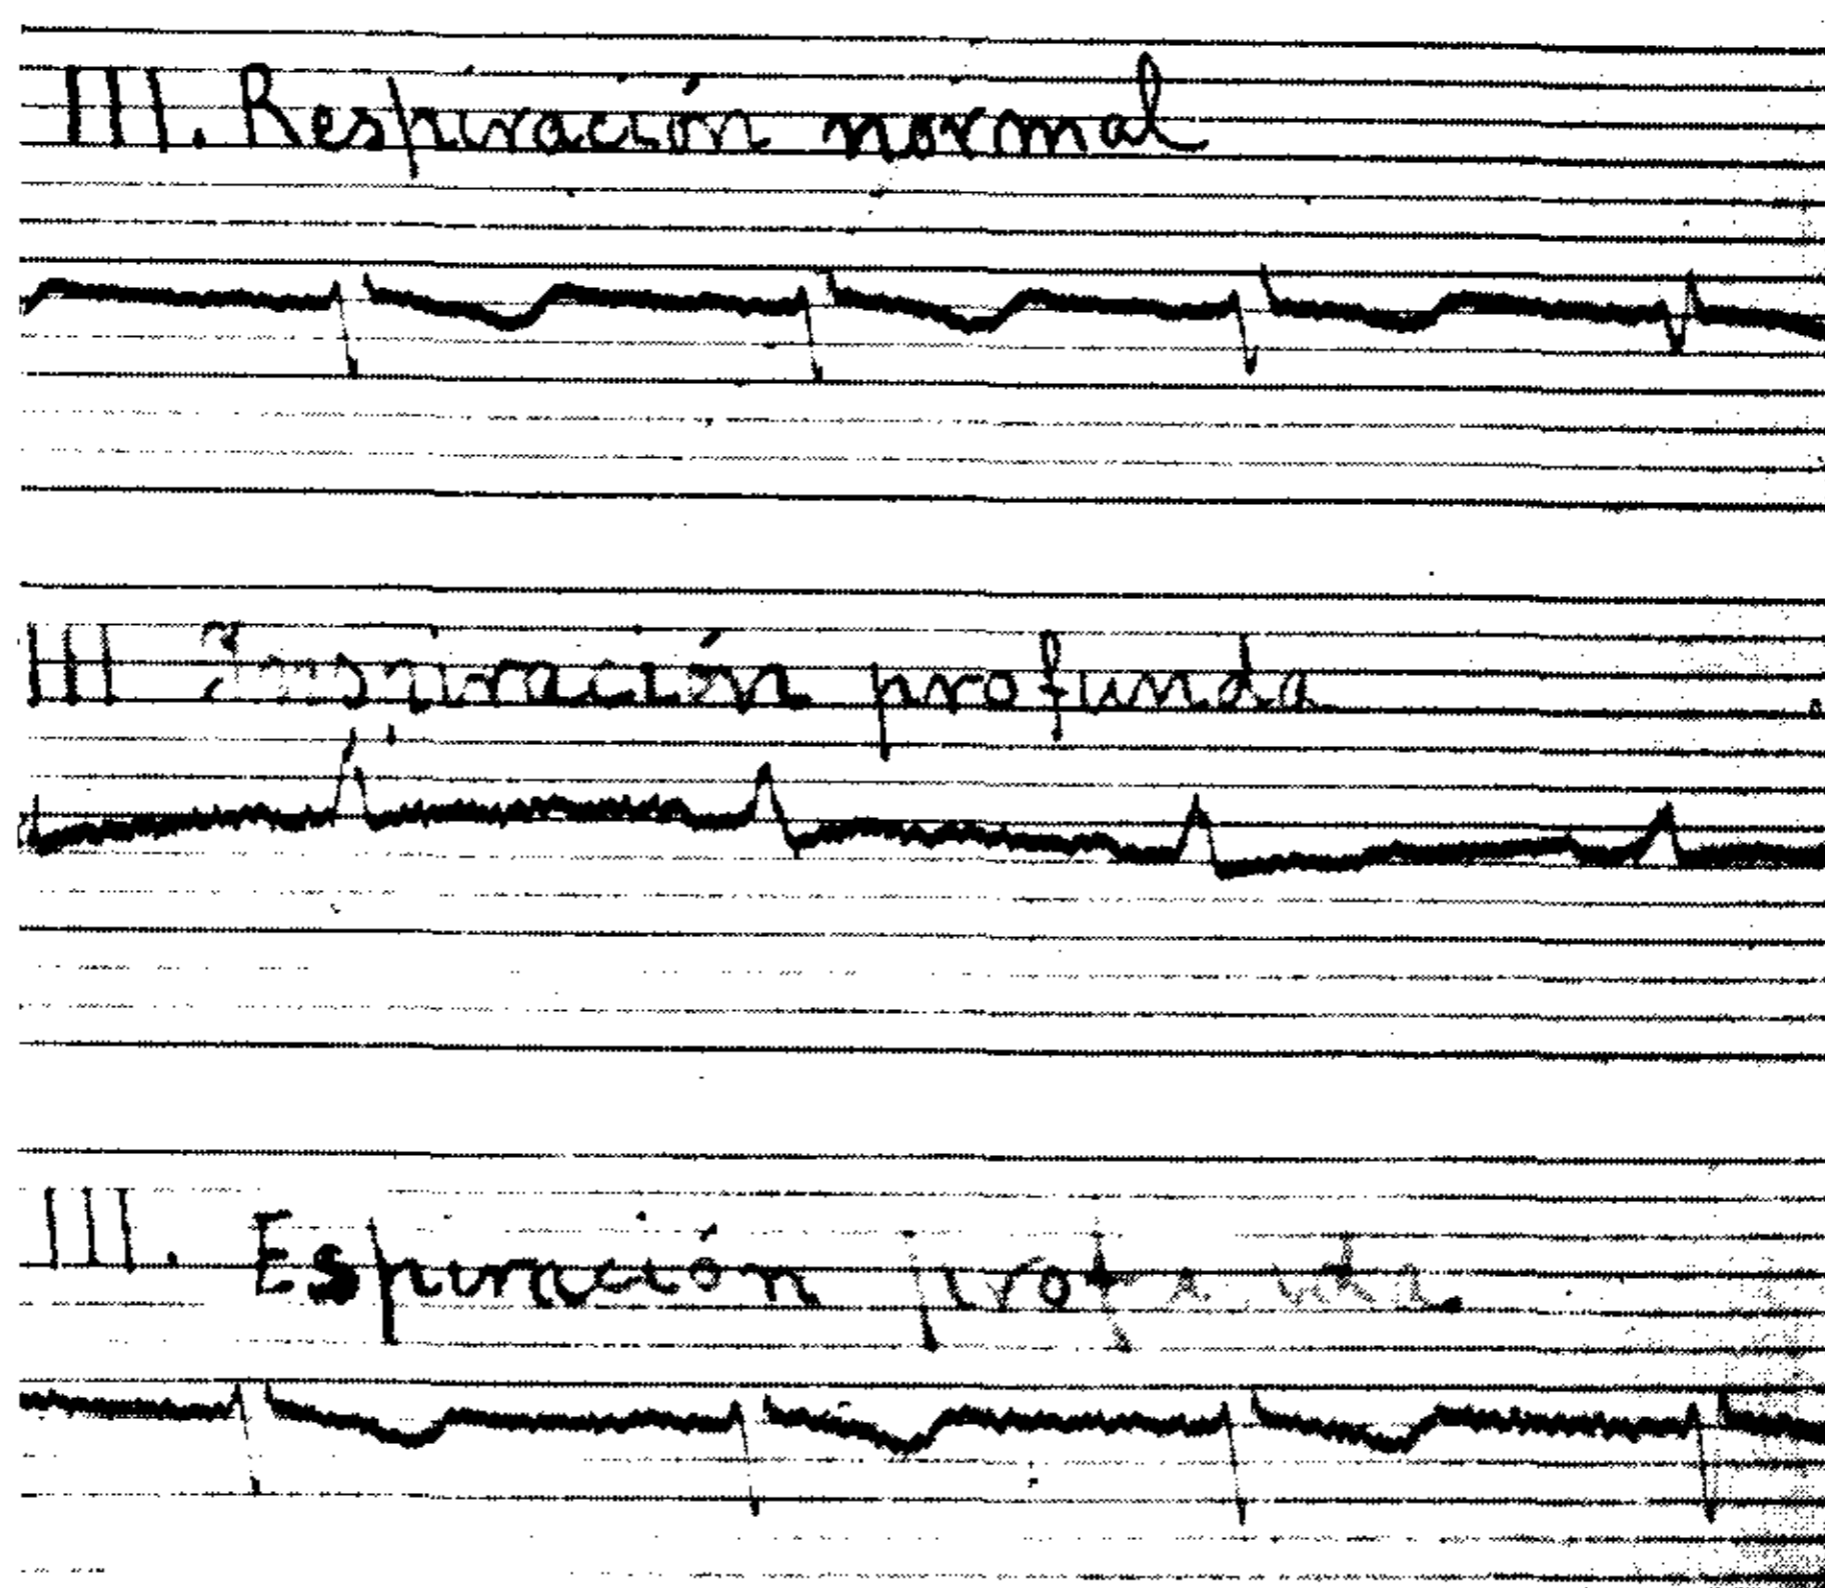 III. Respiración normal
III Inspiración profunda
III. Espiración profunda.